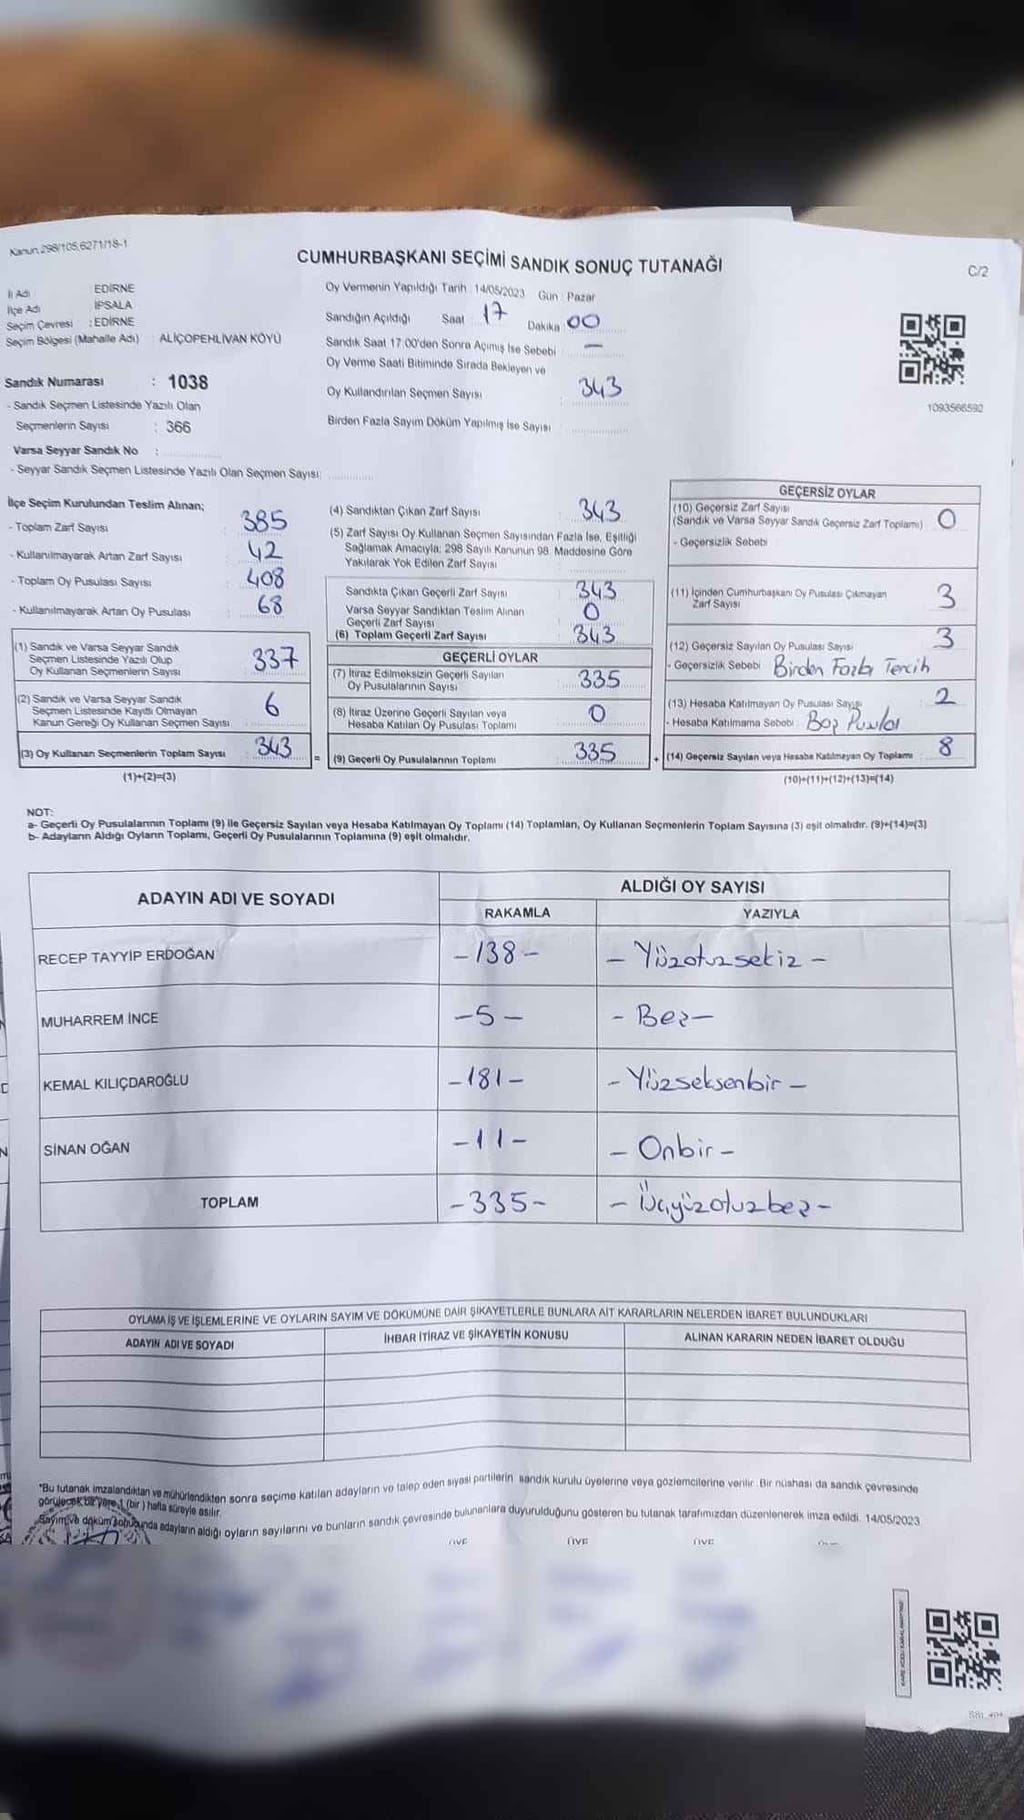 Kanun.298/105,6271/18-1
CUMHURBAŞKANI SEÇİMİ SANDIK SONUÇ TUTANAĞI
C/2
İl Adı EDİRNE
İlçe Adı İPSALA
Seçim Çevresi : EDİRNE
Seçim Bölgesi (Mahalle Adı) : ALİÇOPEHLİVAN KÖYÜ
Sandık Numarası : 1038
- Sandık Seçmen Listesinde Yazılı Olan
Seçmenlerin Sayısı : 366
Varsa Seyyar Sandık No :
- Seyyar Sandık Seçmen Listesinde Yazılı Olan Seçmen Sayısı:
Oy Vermenin Yapıldığı Tarih : 14/05/2023 Gün : Pazar
Sandığın Açıldığı Saat : 17 Dakika : 00
Sandık Saat 17:00'den Sonra Açımış İse Sebebi : —
Oy Verme Saati Bitiminde Sırada Bekleyen ve
Oy Kullandırılan Seçmen Sayısı : 343
Birden Fazla Sayım Döküm Yapılmış İse Sayısı
1093566592
İlçe Seçim Kurulundan Teslim Alınan;
- Toplam Zarf Sayısı : 385
- Kullanılmayarak Artan Zarf Sayısı : 42
- Toplam Oy Pusulası Sayısı : 408
- Kullanılmayarak Artan Oy Pusulası : 68
(1) Sandık ve Varsa Seyyar Sandık
Seçmen Listesinde Yazılı Olup
Oy Kullanan Seçmenlerin Sayısı : 337
(2) Sandık ve Varsa Seyyar Sandık
Seçmen Listesinde Kayıtlı Olmayan
Kanun Gereği Oy Kullanan Seçmen Sayısı : 6
(3) Oy Kullanan Seçmenlerin Toplam Sayısı : 343
(1)+(2)=(3)
(4) Sandıktan Çıkan Zarf Sayısı : 343
(5) Zarf Sayısı Oy Kullanan Seçmen Sayısından Fazla İse, Eşitliği
Sağlamak Amacıyla; 298 Sayılı Kanunun 98. Maddesine Göre
Yakılarak Yok Edilen Zarf Sayısı
Sandıkta Çıkan Geçerli Zarf Sayısı : 343
Varsa Seyyar Sandıktan Teslim Alınan
Geçerli Zarf Sayısı : 0
(6) Toplam Geçerli Zarf Sayısı : 343
GEÇERLİ OYLAR
(7) İtiraz Edilmeksizin Geçerli Sayılan
Oy Pusulalarının Sayısı : 335
(8) İtiraz Üzerine Geçerli Sayılan veya
Hesaba Katılan Oy Pusulası Toplamı : 0
= (9) Geçerli Oy Pusulalarının Toplamı : 335
GEÇERSİZ OYLAR
(10) Geçersiz Zarf Sayısı
(Sandık ve Varsa Seyyar Sandık Geçersiz Zarf Toplamı) : 0
- Geçersizlik Sebebi :
(11) İçinden Cumhurbaşkanı Oy Pusulası Çıkmayan
Zarf Sayısı : 3
(12) Geçersiz Sayılan Oy Pusulası Sayısı : 3
- Geçersizlik Sebebi : Birden Fazla Tercih
(13) Hesaba Katılmayan Oy Pusulası Sayısı : 2
- Hesaba Katılmama Sebebi : Boş Pusula
+ (14) Geçersiz Sayılan veya Hesaba Katılmayan Oy Toplamı : 8
(10)+(11)+(12)+(13)=(14)
NOT:
a- Geçerli Oy Pusulalarının Toplamı (9) ile Geçersiz Sayılan veya Hesaba Katılmayan Oy Toplamı (14) Toplamları, Oy Kullanan Seçmenlerin Toplam Sayısına (3) eşit olmalıdır. (9)+(14)=(3)
b- Adayların Aldığı Oyların Toplamı, Geçerli Oy Pusulalarının Toplamına (9) eşit olmalıdır.
ADAYIN ADI VE SOYADI
ALDIĞI OY SAYISI
RAKAMLA YAZIYLA
RECEP TAYYİP ERDOĞAN -138- - Yüzotuzsekiz -
MUHARREM İNCE -5- - Beş -
KEMAL KILIÇDAROĞLU -181- - Yüzseksenbir -
SİNAN OĞAN -11- - Onbir -
TOPLAM -335- - Üçyüzotuzbeş -
OYLAMA İŞ VE İŞLEMLERİNE VE OYLARIN SAYIM VE DÖKÜMÜNE DAİR ŞİKAYETLERLE BUNLARA AİT KARARLARIN NELERDEN İBARET BULUNDUKLARI
ADAYIN ADI VE SOYADI İHBAR İTİRAZ VE ŞİKAYETİN KONUSU ALINAN KARARIN NEDEN İBARET OLDUĞU
*Bu tutanak imzalandıktan ve mühürlendikten sonra seçime katılan adayların ve talep eden siyasi partilerin sandık kurulu üyelerine veya gözlemcilerine verilir. Bir nüshası da sandık çevresinde
görülecek bir yere 1 (bir) hafta süreyle asılır.
Sayım ve döküm sonucunda adayların aldığı oyların sayılarını ve bunların sandık çevresinde bulunanlara duyurulduğunu gösteren bu tutanak tarafımızdan düzenlenerek imza edildi. 14/05/2023
ÜYE ÜYE ÜYE